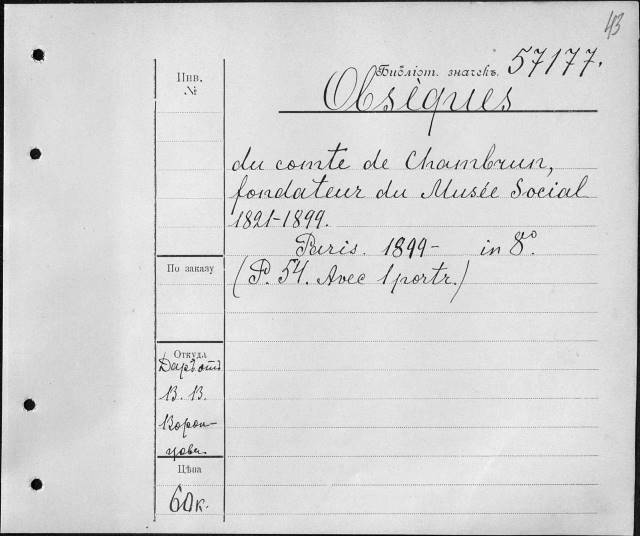 43
Инв.
№
Библіот. значекъ. 57177.
Obsèques
du comte de Chambrun,
fondateur du Musée Social
1821-1899.
Paris. 1899- in 8º.
(P. 54. Avec 1 portr.)
По заказу
Откуда
Даръ отъ
В. В.
Ворон-
цова.
Цѣна
60 к.